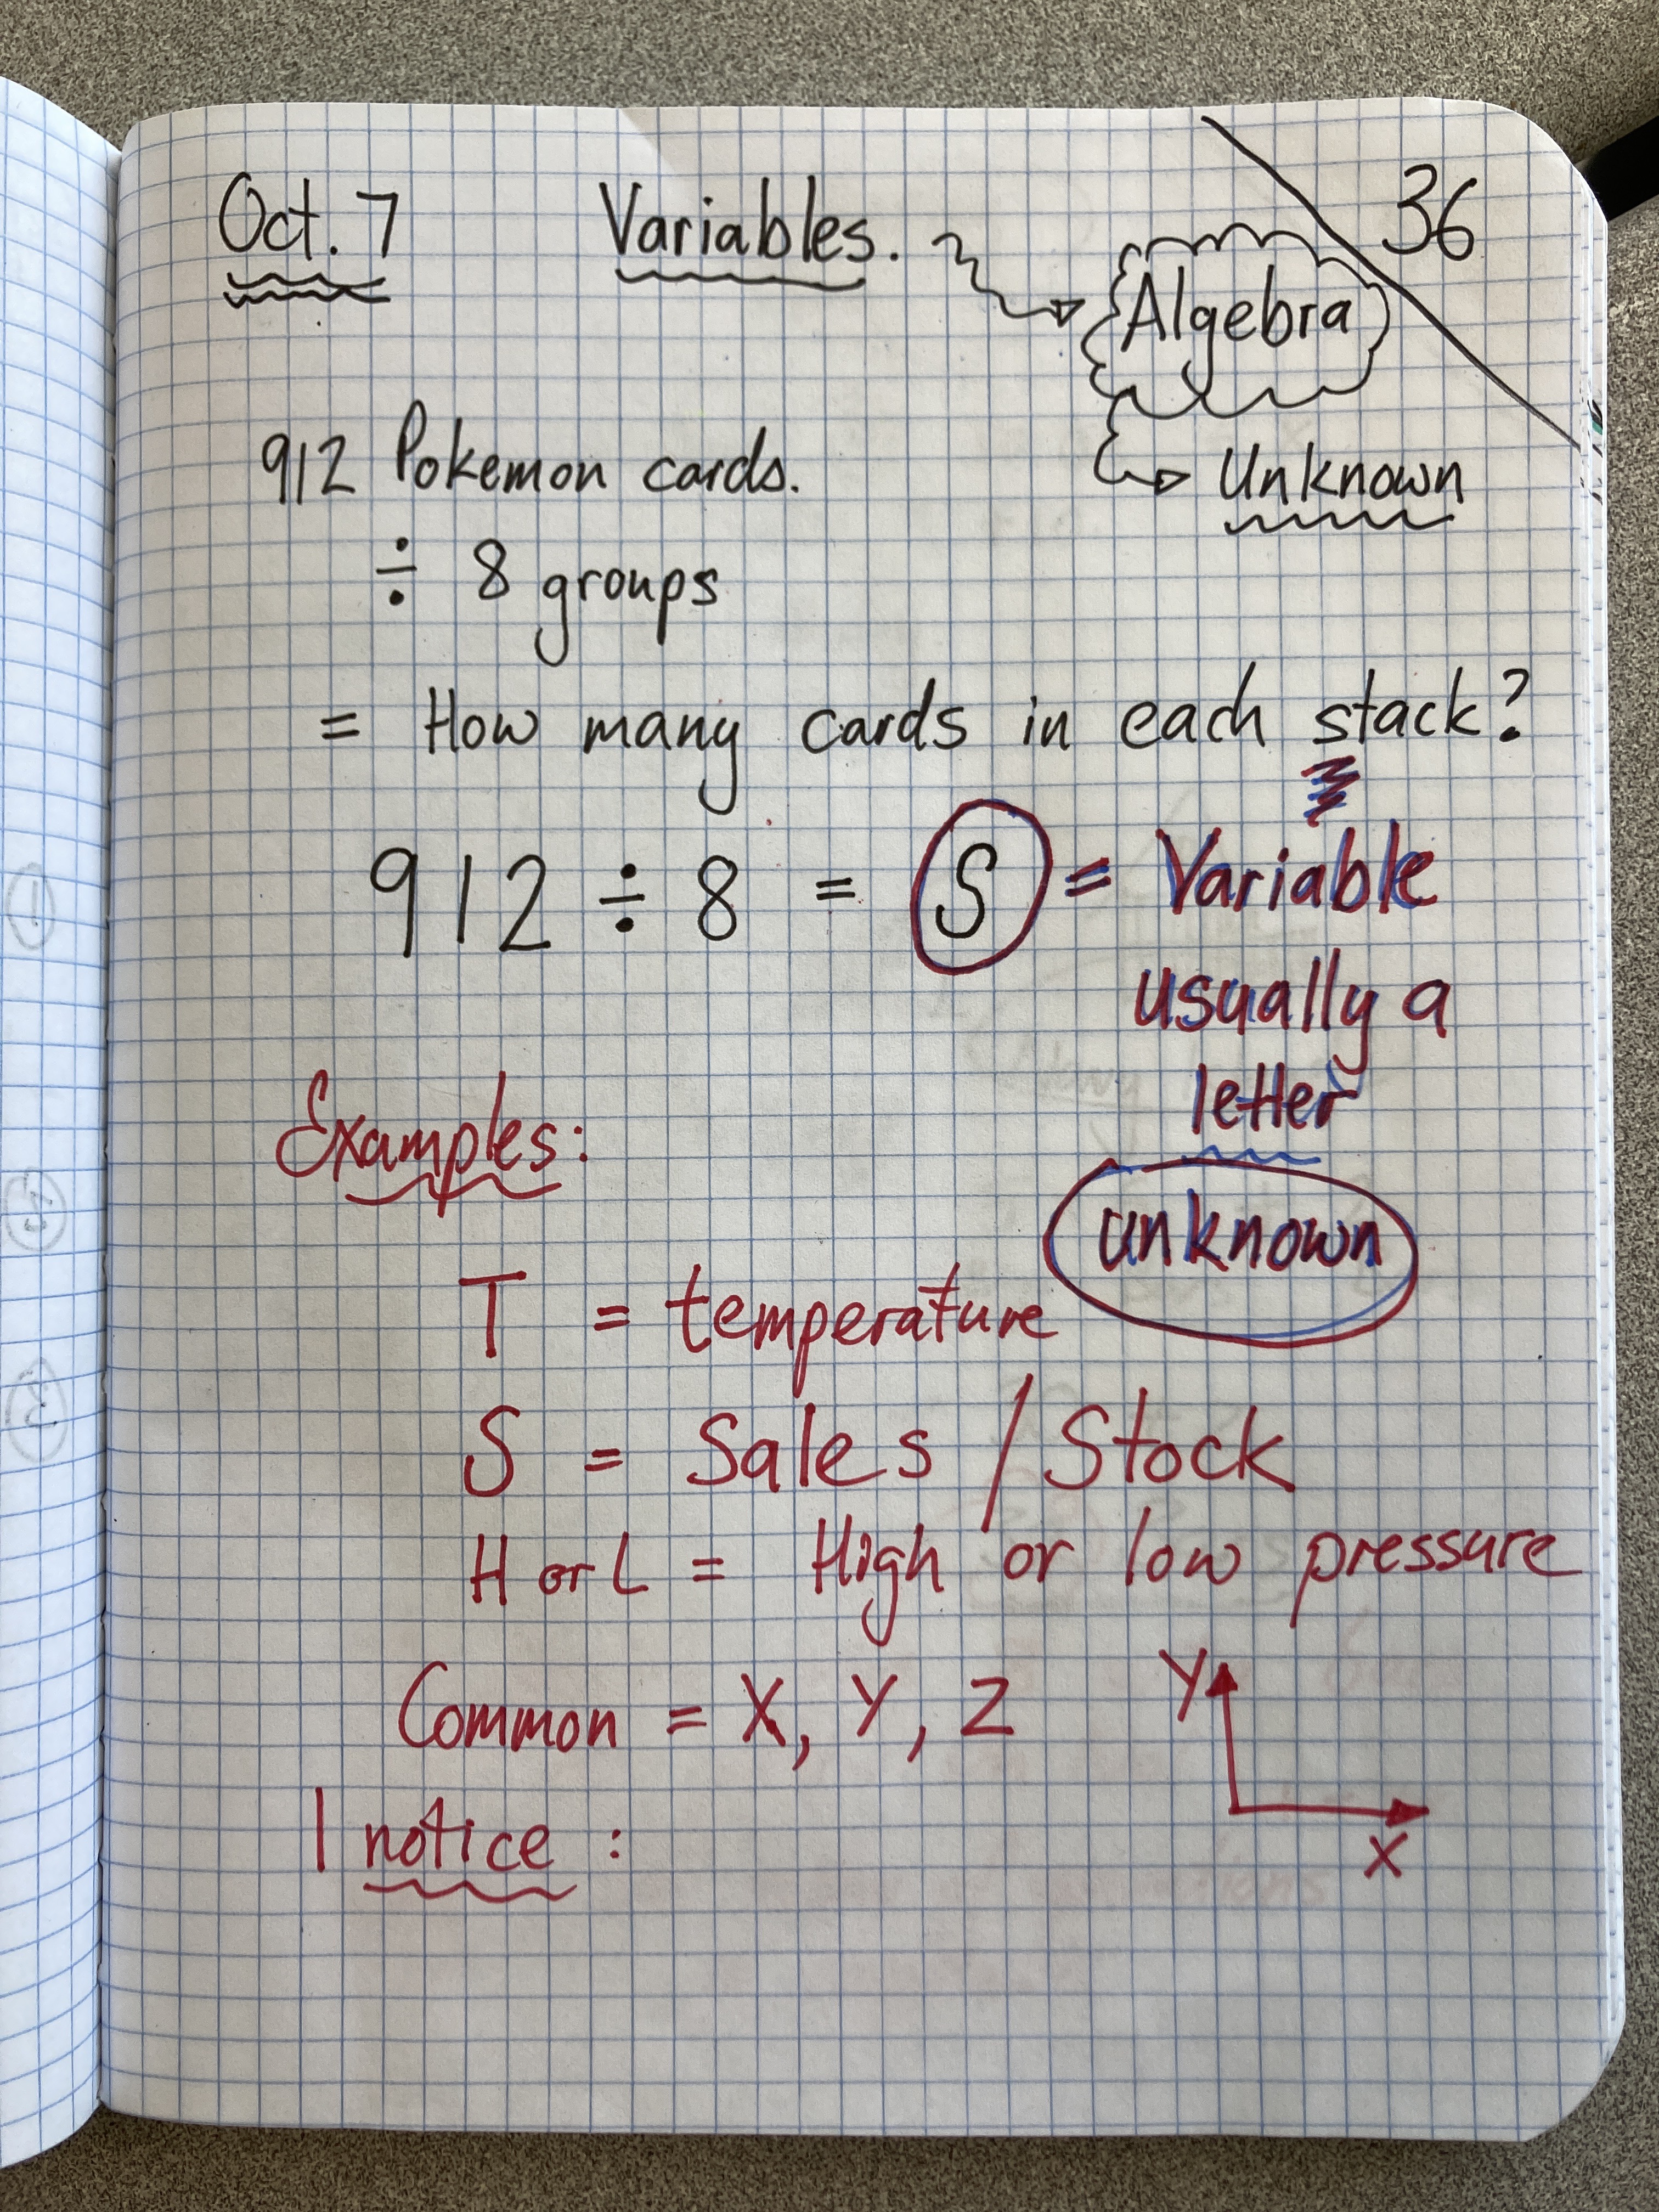 36
Oct. 7 Variables.
Algebra
Unknown
912 Pokemon cards.
÷ 8 groups
= How many cards in each stack?
912 ÷ 8 = S = Variable
usually a
letter
unknown
Examples:
T = temperature
S = Sales / Stock
H or L = High or low pressure
Common = X, Y, Z
Y
X
I notice :